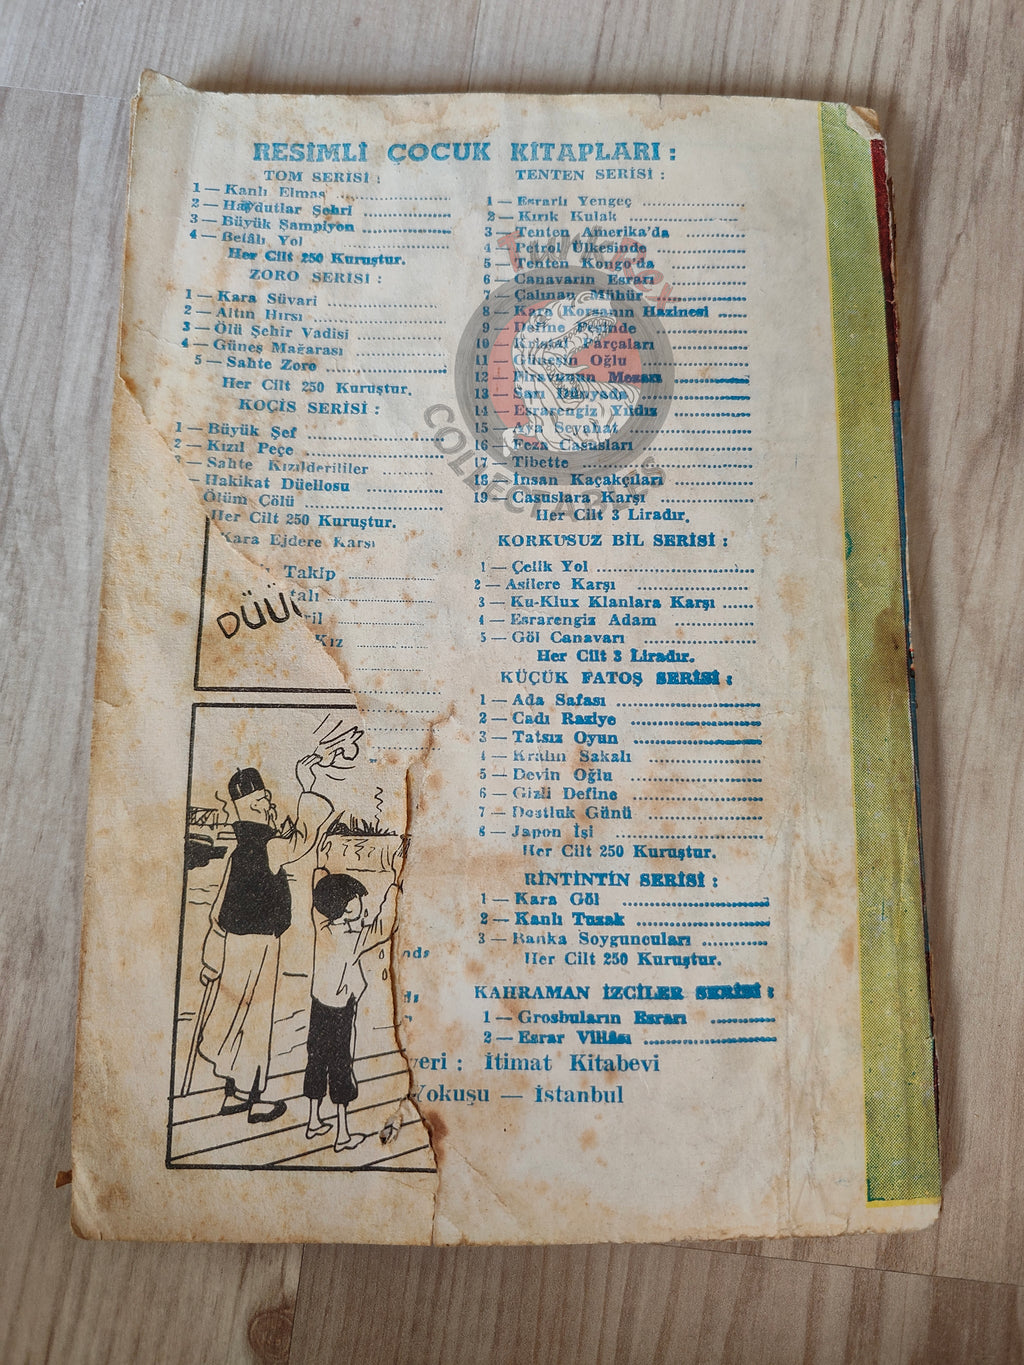 RESİMLİ ÇOCUK KİTAPLARI :
TOM SERİSİ :
1 — Kanlı Elmas
2 — Haydutlar Şehri
3 — Büyük Şampiyon
4 — Betâlı Yol
Her Cilt 250 Kuruştur.
ZORO SERİSİ :
1 — Kara Süvari
2 — Altın Hırsı
3 — Ölü Şehir Vadisi
4 — Güneş Mağarası
5 — Sahte Zoro
Her Cilt 250 Kuruştur.
KOÇİS SERİSİ :
1 — Büyük Şef
2 — Kızıl Peçe
3 — Sahte Kızılderililer
— Hakikat Düellosu
Ölüm Çölü
Her Cilt 250 Kuruştur.
Kara Ejdere Karşı
Takip
talı
ril
Kız
DÜÜÜ
TENTEN SERİSİ :
1 — Esrarlı Yengeç
2 — Kırık Kulak
3 — Tenten Amerika'da
4 — Petrol Ülkesinde
5 — Tenten Kongo'da
6 — Canavarın Esrarı
7 — Çalınan Mühür
8 — Kara Korsanın Hazinesi
9 — Define Peşinde
10 — Kristal Parçaları
11 — Güneşin Oğlu
12 — Firavunun Mezarı
13 — Sarı Dünyada
14 — Esrarengiz Yıldız
15 — Aya Seyahat
16 — Feza Casusları
17 — Tibette
18 — İnsan Kaçakçıları
19 — Casuslara Karşı
Her Cilt 3 Liradır.
KORKUSUZ BİL SERİSİ :
1 — Çelik Yol
2 — Asilere Karşı
3 — Ku-Klux Klanlara Karşı
4 — Esrarengiz Adam
5 — Göl Canavarı
Her Cilt 3 Liradır.
KÜÇÜK FATOŞ SERİSİ :
1 — Ada Safası
2 — Cadı Raziye
3 — Tatsız Oyun
4 — Kralın Sakalı
5 — Devin Oğlu
6 — Gizli Define
7 — Dostluk Günü
8 — Japon İşi
Her Cilt 250 Kuruştur.
RİNTİNTİN SERİSİ :
1 — Kara Göl
2 — Kanlı Tuzak
3 — Banka Soyguncuları
Her Cilt 250 Kuruştur.
KAHRAMAN İZCİLER SERİSİ :
1 — Grosbuların Esrarı
2 — Esrar Villâsı
yeri : İtimat Kitabevi
Yokuşu — İstanbul
COLLECTABLES